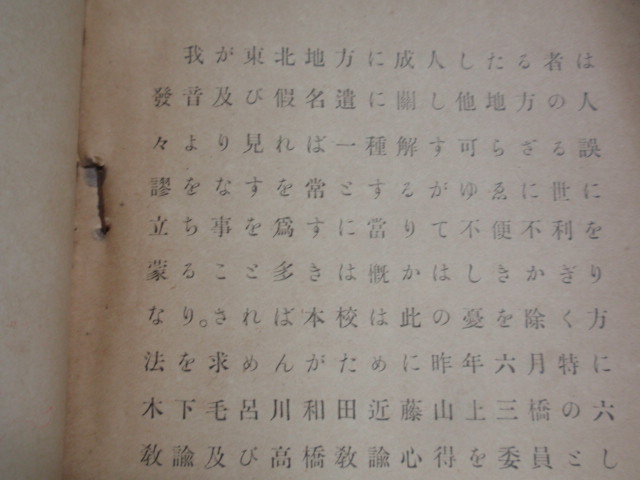 我が東北地方に成人したる者は
發音及び假名遣に關し他地方の人
々より見れば一種解す可らざる誤
謬をなすを常とするがゆゑに世に
立ち事を爲すに當りて不便不利を
蒙ること多きは慨かはしきかぎり
なり。されば本校は此の憂を除く方
法を求めんがために昨年六月特に
木下毛呂川和田近藤山上三橋の六
敎諭及び高橋敎諭心得を委員とし